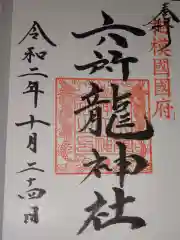 奉拝
相模國國府
六所龍神社
令和二年十月二十四日